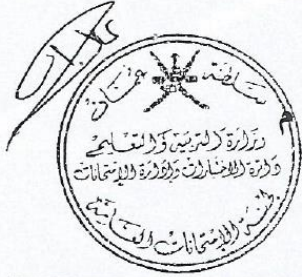 سلطنة عمان
وزارة التربية والتعليم
دائرة الاختبارات وإدارة الامتحانات
لجنة الامتحانات العامة